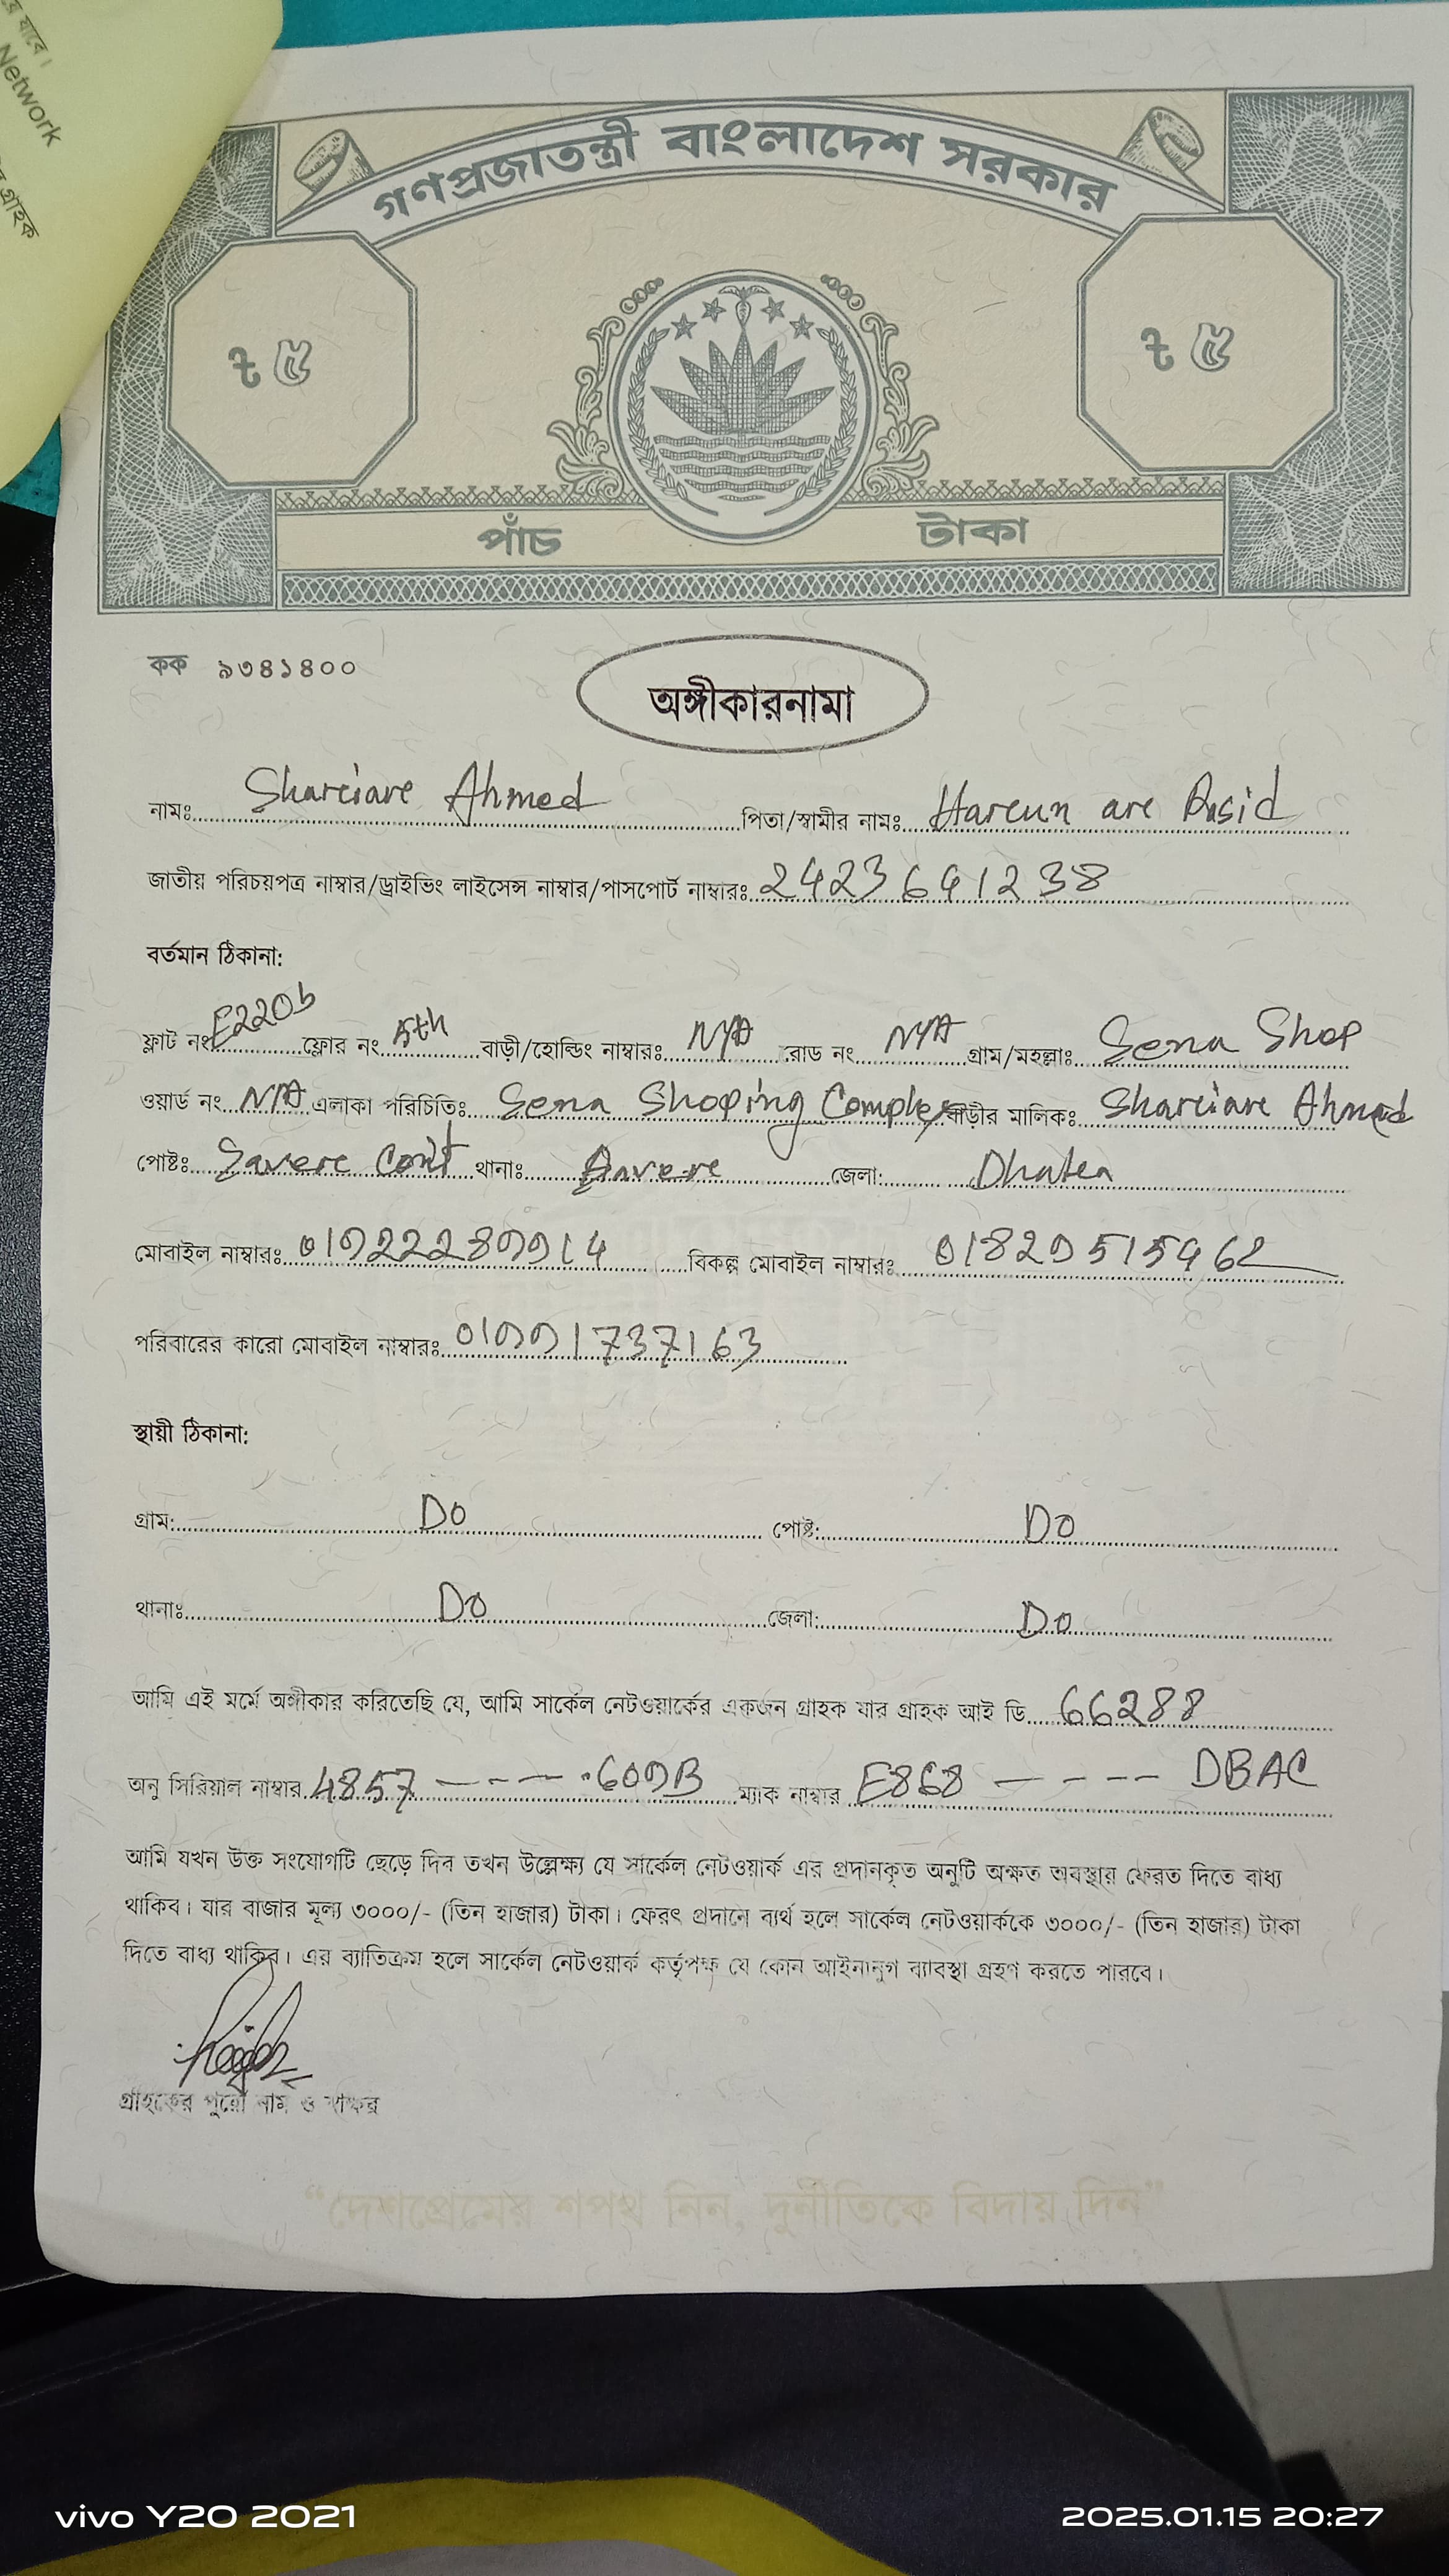 যাবে।
Network
গ্রাহক
গণপ্রজাতন্ত্রী বাংলাদেশ সরকার
৳ ৫ ৳ ৫
পাঁচ টাকা
কক ৯৩৪১৪০০
অঙ্গীকারনামা
নামঃ Sharciare Ahmed পিতা/স্বামীর নামঃ Hareun are Rasid
জাতীয় পরিচয়পত্র নাম্বার/ড্রাইভিং লাইসেন্স নাম্বার/পাসপোর্ট নাম্বারঃ 2423641238
বর্তমান ঠিকানা:
ফ্লাট নং ফ্লোর নং 5th বাড়ী/হোল্ডিং নাম্বারঃ N/A রোড নং N/A গ্রাম/মহল্লাঃ Sena Shop
ওয়ার্ড নং N/A এলাকা পরিচিতিঃ Sena Shoping Complex বাড়ীর মালিকঃ Sharciare Ahmed
পোষ্টঃ Savere Cont থানাঃ Savere জেলা:
মোবাইল নাম্বারঃ বিকল্প মোবাইল নাম্বারঃ
পরিবারের কারো মোবাইল নাম্বারঃ
স্থায়ী ঠিকানা:
গ্রাম: Do পোষ্ট: Do
থানাঃ Do জেলা: Do
আমি এই মর্মে অঙ্গীকার করিতেছি যে, আমি সার্কেল নেটওয়ার্কের একজন গ্রাহক যার গ্রাহক আই ডি 66288
অনু সিরিয়াল নাম্বার 4857 ---- 609B ম্যাক নাম্বার E868 ---- DBAC
আমি যখন উক্ত সংযোগটি ছেড়ে দিব তখন উল্লেক্ষ্য যে সার্কেল নেটওয়ার্ক এর প্রদানকৃত অনুটি অক্ষত অবস্থায় ফেরত দিতে বাধ্য
থাকিব। যার বাজার মূল্য ৩০০০/- (তিন হাজার) টাকা। ফেরৎ প্রদানে ব্যর্থ হলে সার্কেল নেটওয়ার্ককে ৩০০০/- (তিন হাজার) টাকা
দিতে বাধ্য থাকিব। এর ব্যাতিক্রম হলে সার্কেল নেটওয়ার্ক কর্তৃপক্ষ যে কোন আইনানুগ ব্যাবস্থা গ্রহণ করতে পারবে।
গ্রাহকের পুরো নাম ও স্বাক্ষর
“দেশপ্রেমের শপথ নিন, দুর্নীতিকে বিদায় দিন”
vivo Y20 2021 2025.01.15 20:27